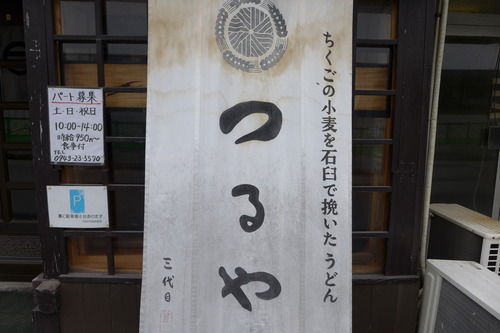 ちくごの小麦を石臼で挽いた うどん
つるや
三代目
パート募集
土・日・祝日
10:00~14:00
時給950円~
食事付
TEL
0943-23-5570
P